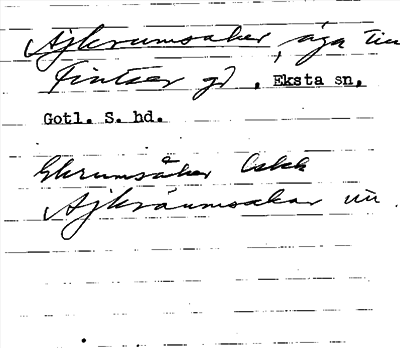 Ajkrumsaker, äga till
Fintser gd, Eksta sn,
Gotl. S. hd.
Ekrumsåker
Ajkräumsakar